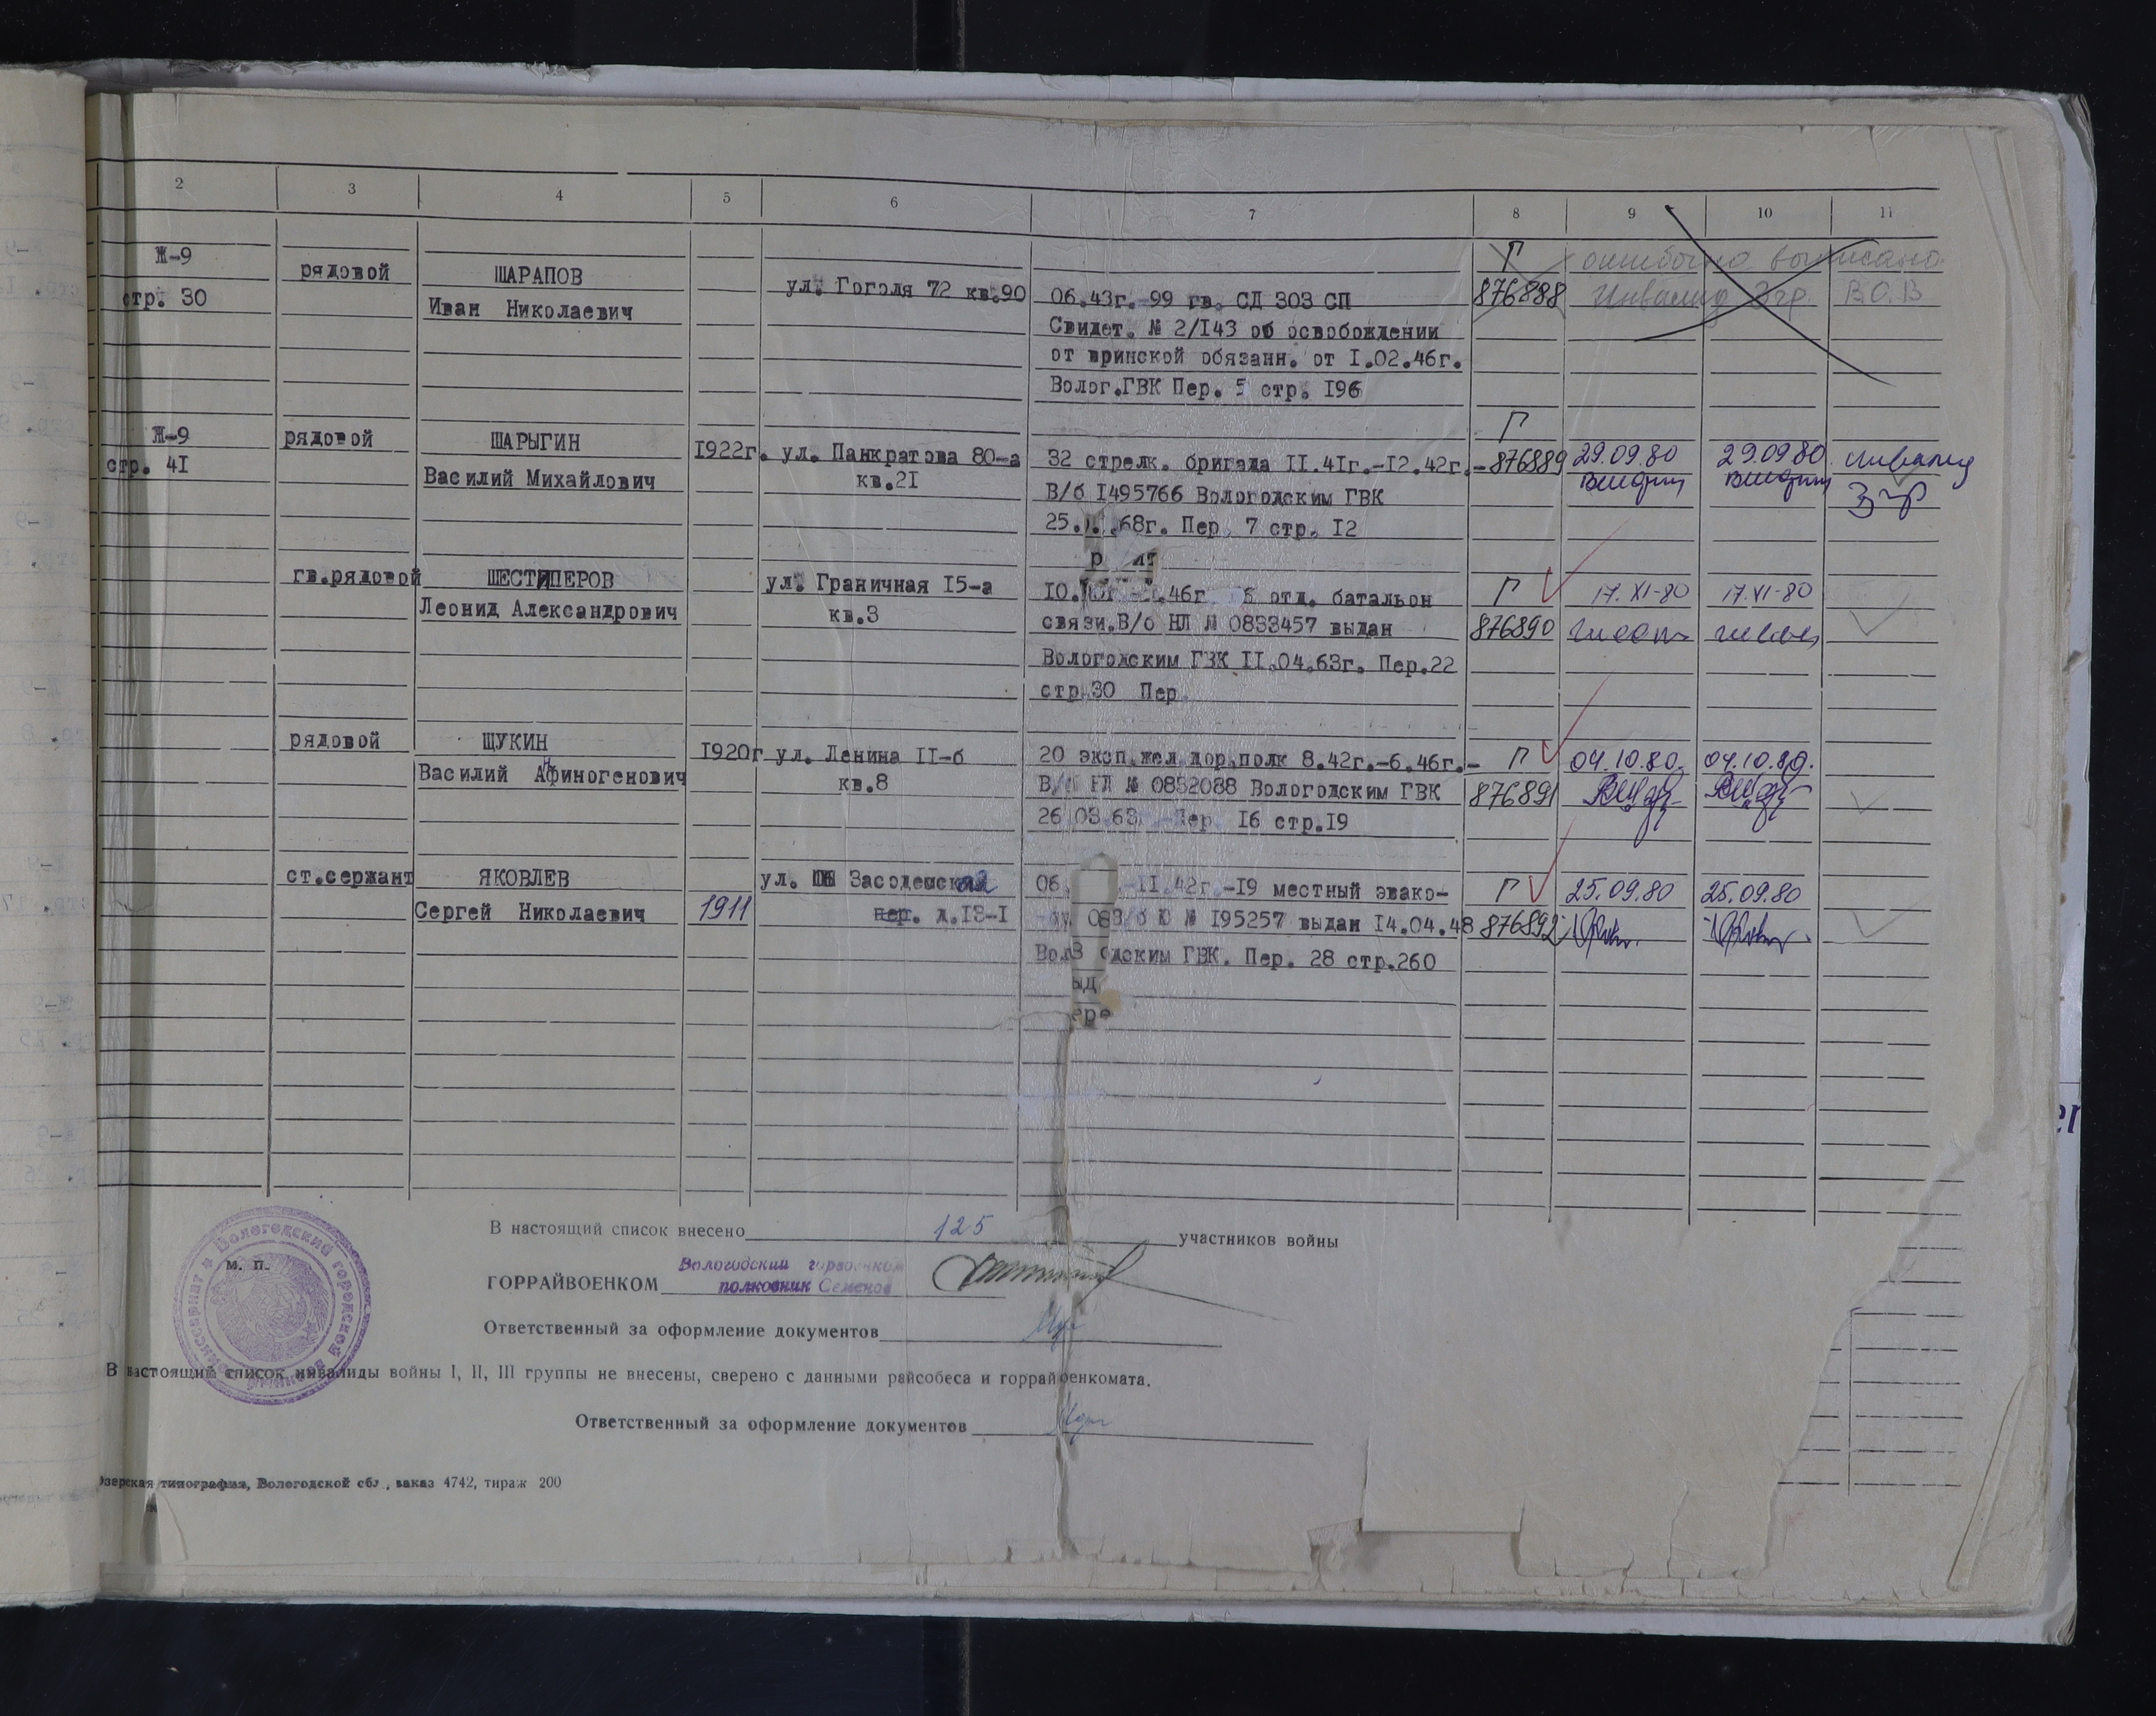 2 3 4 5 6 7 8 9 10 11
Ж-9 рядовой ШАРАПОВ ул. Гоголя 72 кв.90 Г ошибочно выписано
стр. 30 Иван Николаевич 06.43г. 99 гв. СД 303 СП 876888 Инвалид 3 гр. В.О.В
Свидет. № 2/I43 об освобождении
от воинской обязанн. от I.02.46г.
Волог.ГВК Пер. 5 стр. I96
Г
Ж-9 рядовой ШАРЫГИН 1922г. ул. Панкратова 80-а 32 стрелк. бригада II.4Iг.-I2.42г.- 876889 29.09.80 29.09.80 инвалид
стр. 4I Василий Михайлович кв.2I В/б I495766 Вологодским ГВК 3 гр
25. .68г. Пер. 7 стр. I2
гв.рядовой ШЕСТИПЕРОВ ул. Граничная I5-а I0. .46г отд. батальон Г 17.XI-80 17.XI-80
Леонид Александрович кв.3 связи.В/б НЛ № 0833457 выдан 876890
Вологодским ГВК II.04.63г. Пер.22
стр.30 Пер.
рядовой ЩУКИН I920г ул. Ленина II-б 20 эксп.жел.дор.полк 8.42г.-6.46г.- Г 04.10.80. 04.10.80.
Василий Афиногенович кв.8 В/б НЛ № 0832088 Вологодским ГВК 876891
26.03.63 Пер. I6 стр.I9
ст.сержант ЯКОВЛЕВ ул. Засодемская 06. -II.42г.-I9 местный эвако- Г 25.09.80 25.09.80
Сергей Николаевич 1911 пер. д.I3-I № I95257 выдан I4.04.48 876892
одским ГВК. Пер. 28 стр.260
ыд
ере
В настоящий список внесено 125 участников войны
М. П.
Вологодский горвоенком
ГОРРАЙВОЕНКОМ полковник Семенов
Ответственный за оформление документов
В настоящий список инвалиды войны I, II, III группы не внесены, сверено с данными райсобеса и горрайвоенкомата.
Ответственный за оформление документов
зерская типография, Вологодской обл., заказ 4742, тираж 200